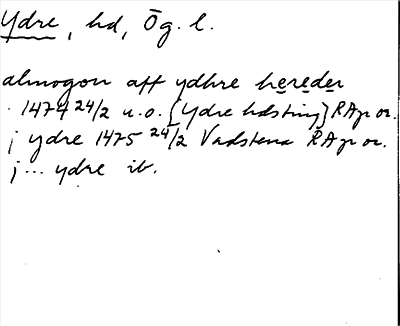 Ydre, hd, Ög. l.
almogen aff ydhre hereder
1474 24/2 u.o. {Ydre hdsting} RAp or.
j ydre 1475 24/2 Vadstena RAp or.
j ... ydre ib.